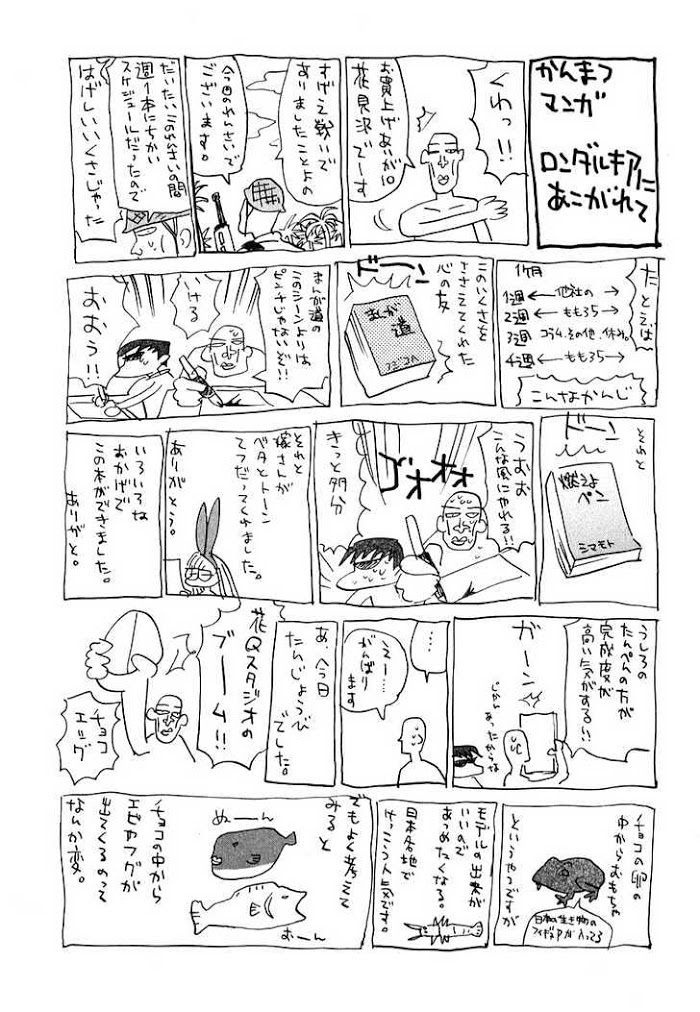 かんまつ
マンガ
ロンダルキアに
あこがれて
くわっ!!
お買上げありが10
花見沢でーす
すげえ戦いで
ありましたことよの
今回のれんさいで
ございます。
だいたいこのれんさいの間
週1本にちかい
スケジュールだったので
はげしいいくさじゃった
たとえば
1ヶ月
1週 ← 他社の →
2週 ← もも35 →
3週 コラム、その他、休み。
4週 ← もも35 →
こんなかんじ
このいくさを
ささえてくれた
心の友
ドーン
まんが
道
フジコA
まんが道の
このシーンよりは
ピンチじゃないぞ!!
いける
おおう!!
それと
ドーン
燃えよ
ペン
シマモト
うむむ
こんな風にやれる!!
ゴオオオ
きっと多分
それと
嫁さんが
ベタとトーン
てつだってくれました。
ありがとう。
いろいろな
おかげで
この本ができました。
ありがと。
うしろの
たんぺんの方が
完成度が
高い気がする!!
ガーン
じかん
あったからな
…
えー…
がんばり
ます
あ、今日
たんじょうび
でした。
花Qスタジオの
ブーム!!
チョコ
エッグ
チョコの卵の
中からおもちゃ
というやつですが
日本の生き物の
フィギュアが入ってる
モデルの出来が
いいので
あつめたくなる。
日本各地で
けっこう人気です。
でもよく考えて
みると
ぬーん
むーん
チョコの中から
エビやフグが
出てくるのって
なんか変。